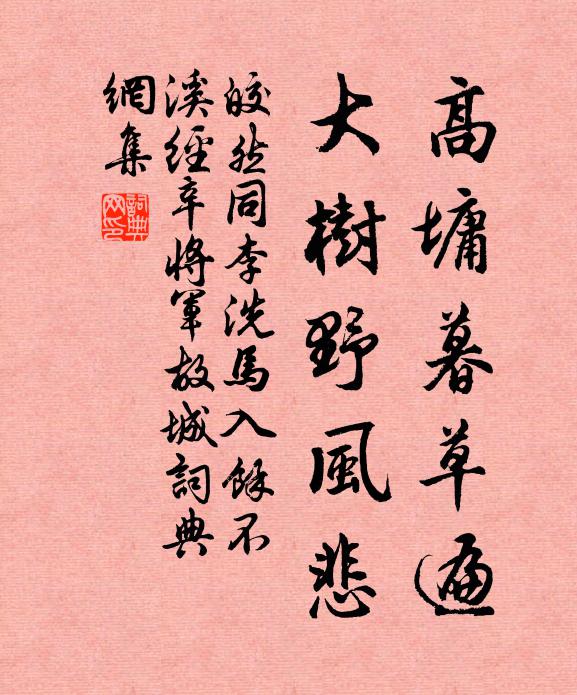 高墉暮草遍
大樹野風悲
皎然同李洗馬入餘不
溪經辛將軍故城詞典
網集
詞典網印